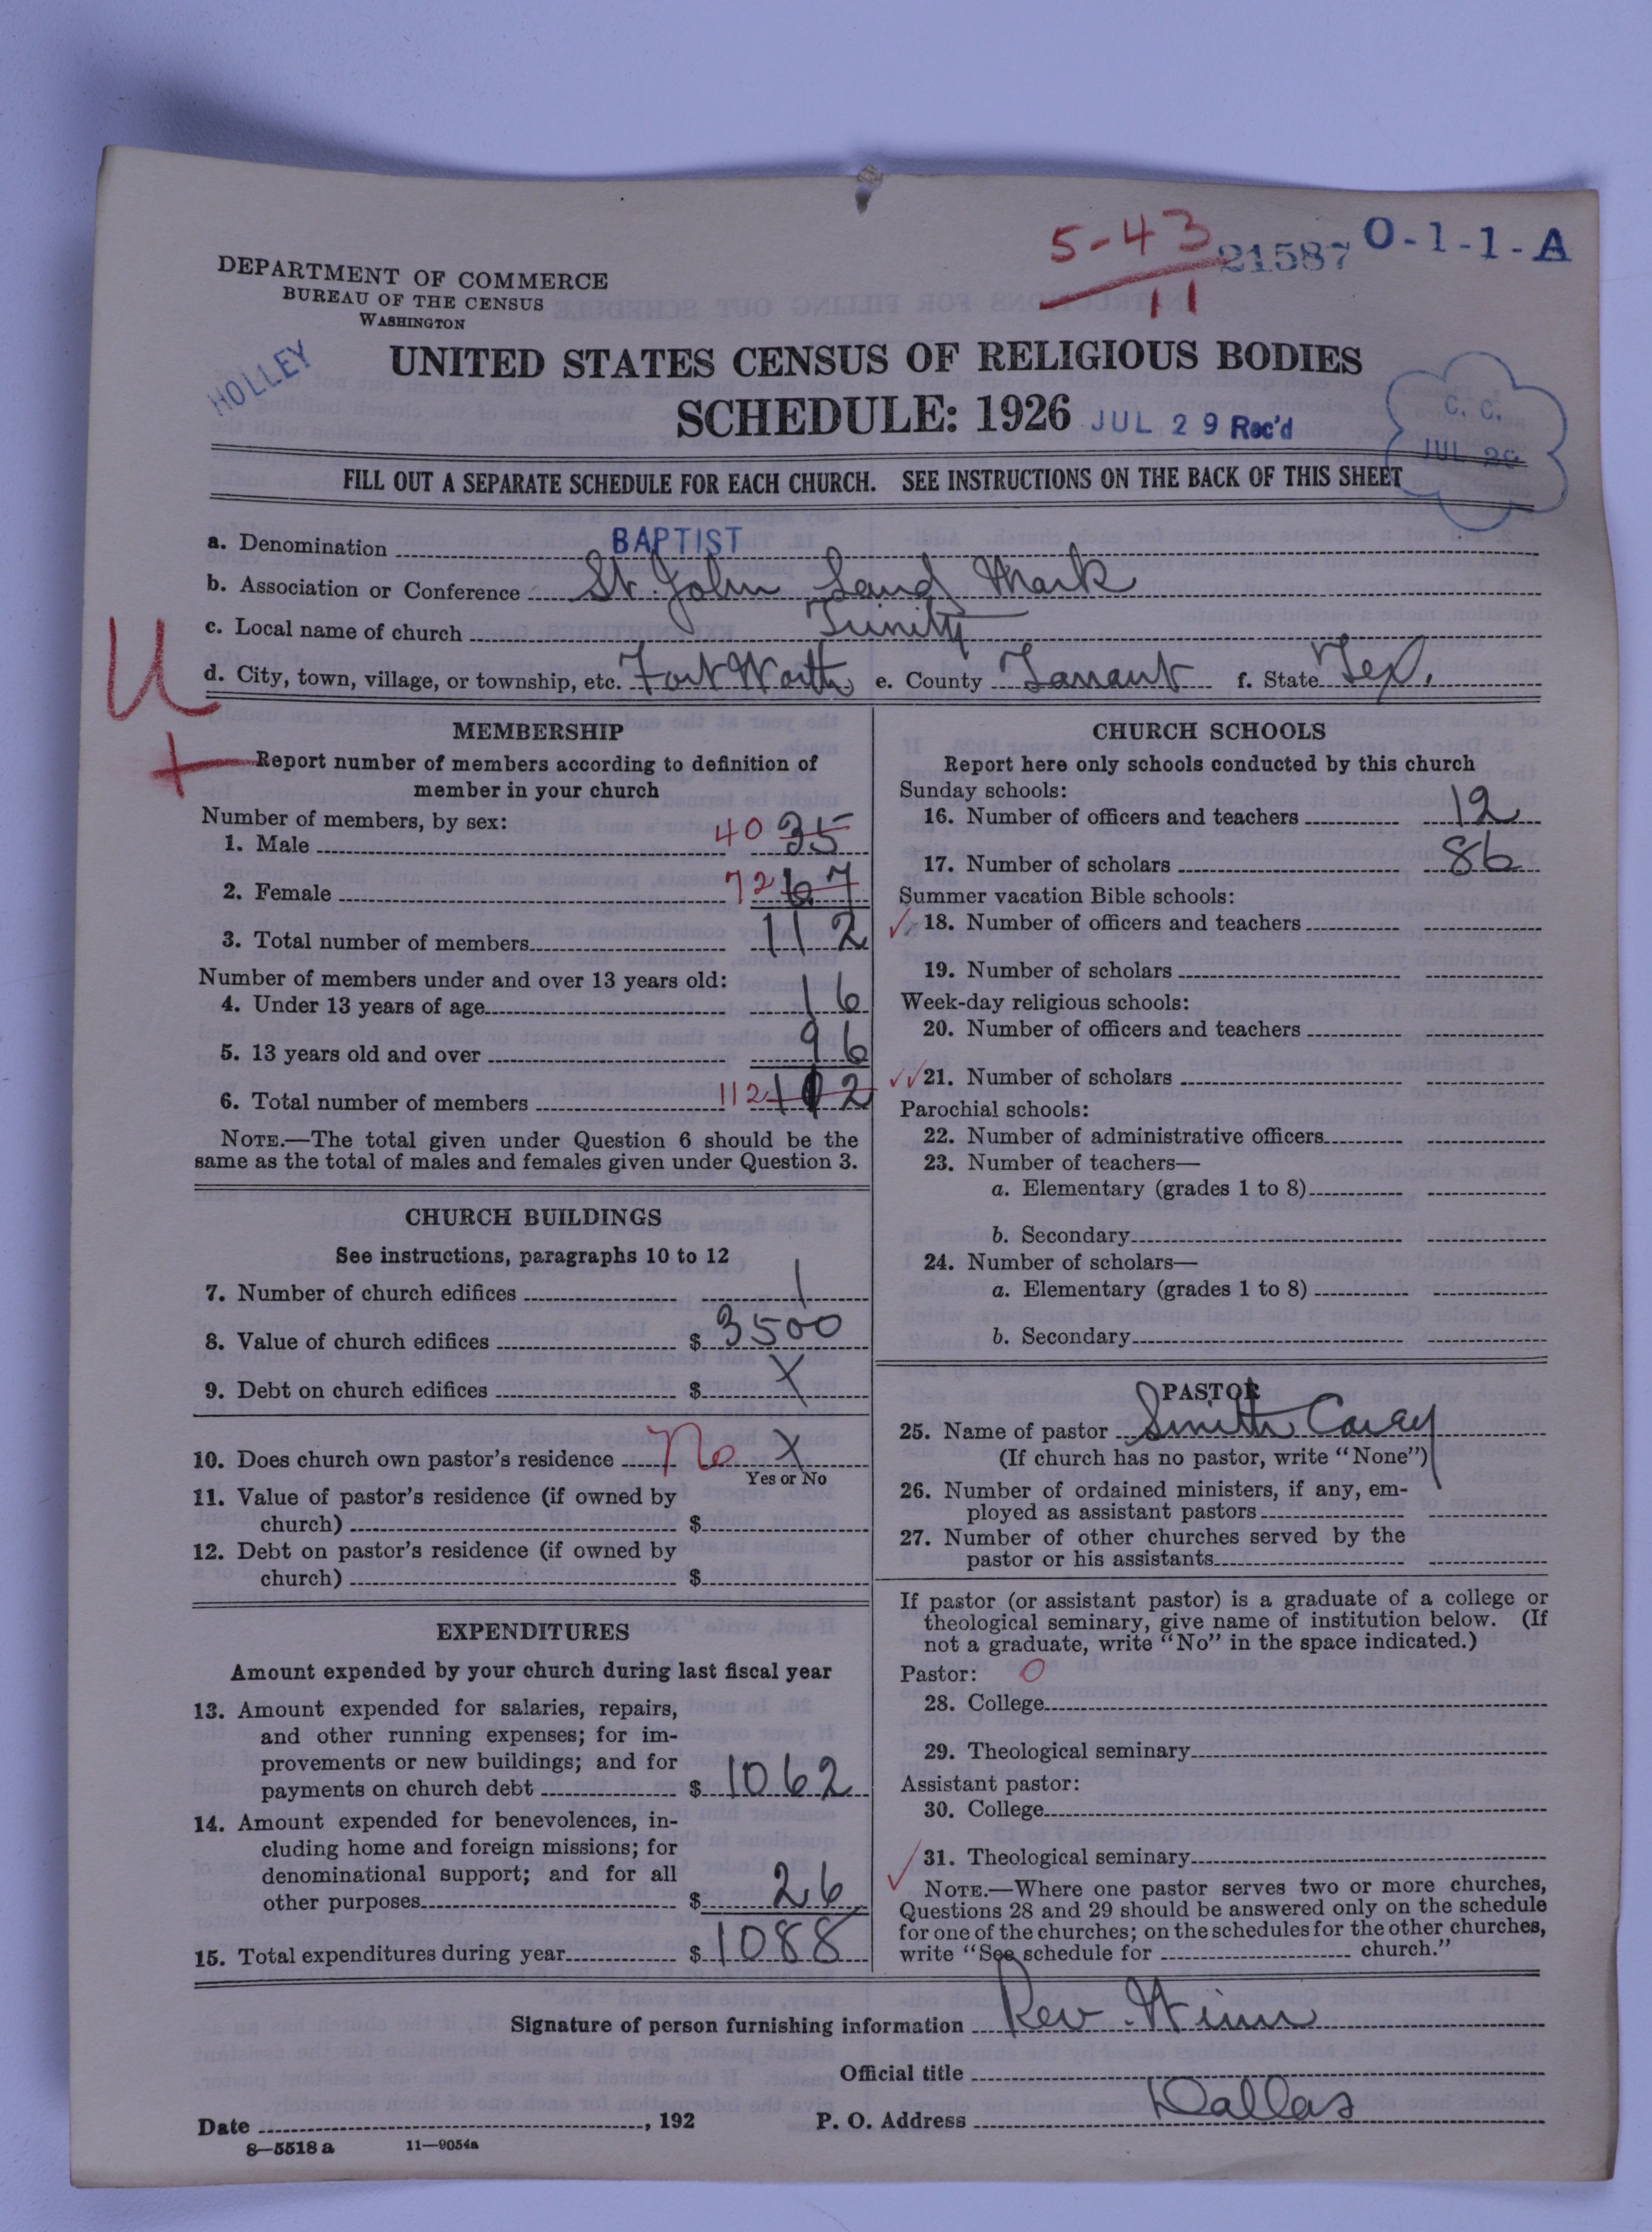 5-43
11
21587
O-1-1-A
DEPARTMENT OF COMMERCE
BUREAU OF THE CENSUS
WASHINGTON
HOLLEY
UNITED STATES CENSUS OF RELIGIOUS BODIES
SCHEDULE: 1926
JUL 29 Rec'd
C. C.
JUL 29
FILL OUT A SEPARATE SCHEDULE FOR EACH CHURCH. SEE INSTRUCTIONS ON THE BACK OF THIS SHEET
a. Denomination BAPTIST
b. Association or Conference St. John Land Mark
c. Local name of church Trinity
d. City, town, village, or township, etc. Fort Worth e. County Tarrant f. State Tex.
U
+
MEMBERSHIP
Report number of members according to definition of
member in your church
Number of members, by sex:
1. Male 40 35
2. Female 72 67
3. Total number of members 112
Number of members under and over 13 years old:
4. Under 13 years of age 16
5. 13 years old and over 96
6. Total number of members 112 102
NOTE.—The total given under Question 6 should be the
same as the total of males and females given under Question 3.
CHURCH BUILDINGS
See instructions, paragraphs 10 to 12
7. Number of church edifices 1
8. Value of church edifices $ 3500
9. Debt on church edifices $ X
10. Does church own pastor's residence No X
Yes or No
11. Value of pastor's residence (if owned by
church) $
12. Debt on pastor's residence (if owned by
church) $
EXPENDITURES
Amount expended by your church during last fiscal year
13. Amount expended for salaries, repairs,
and other running expenses; for im-
provements or new buildings; and for
payments on church debt $ 1062
14. Amount expended for benevolences, in-
cluding home and foreign missions; for
denominational support; and for all
other purposes $ 26
15. Total expenditures during year $ 1088
CHURCH SCHOOLS
Report here only schools conducted by this church
Sunday schools:
16. Number of officers and teachers 12
17. Number of scholars 86
Summer vacation Bible schools:
18. Number of officers and teachers
19. Number of scholars
Week-day religious schools:
20. Number of officers and teachers
21. Number of scholars
Parochial schools:
22. Number of administrative officers
23. Number of teachers—
a. Elementary (grades 1 to 8)
b. Secondary
24. Number of scholars—
a. Elementary (grades 1 to 8)
b. Secondary
PASTOR
25. Name of pastor Smith Caray
(If church has no pastor, write "None")
26. Number of ordained ministers, if any, em-
ployed as assistant pastors
27. Number of other churches served by the
pastor or his assistants
If pastor (or assistant pastor) is a graduate of a college or
theological seminary, give name of institution below. (If
not a graduate, write "No" in the space indicated.)
Pastor: O
28. College
29. Theological seminary
Assistant pastor:
30. College
31. Theological seminary
NOTE.—Where one pastor serves two or more churches,
Questions 28 and 29 should be answered only on the schedule
for one of the churches; on the schedules for the other churches,
write "See schedule for church."
Signature of person furnishing information Rev. Winn
Official title
Date , 192 P. O. Address Dallas
8—5518 a 11—9054a